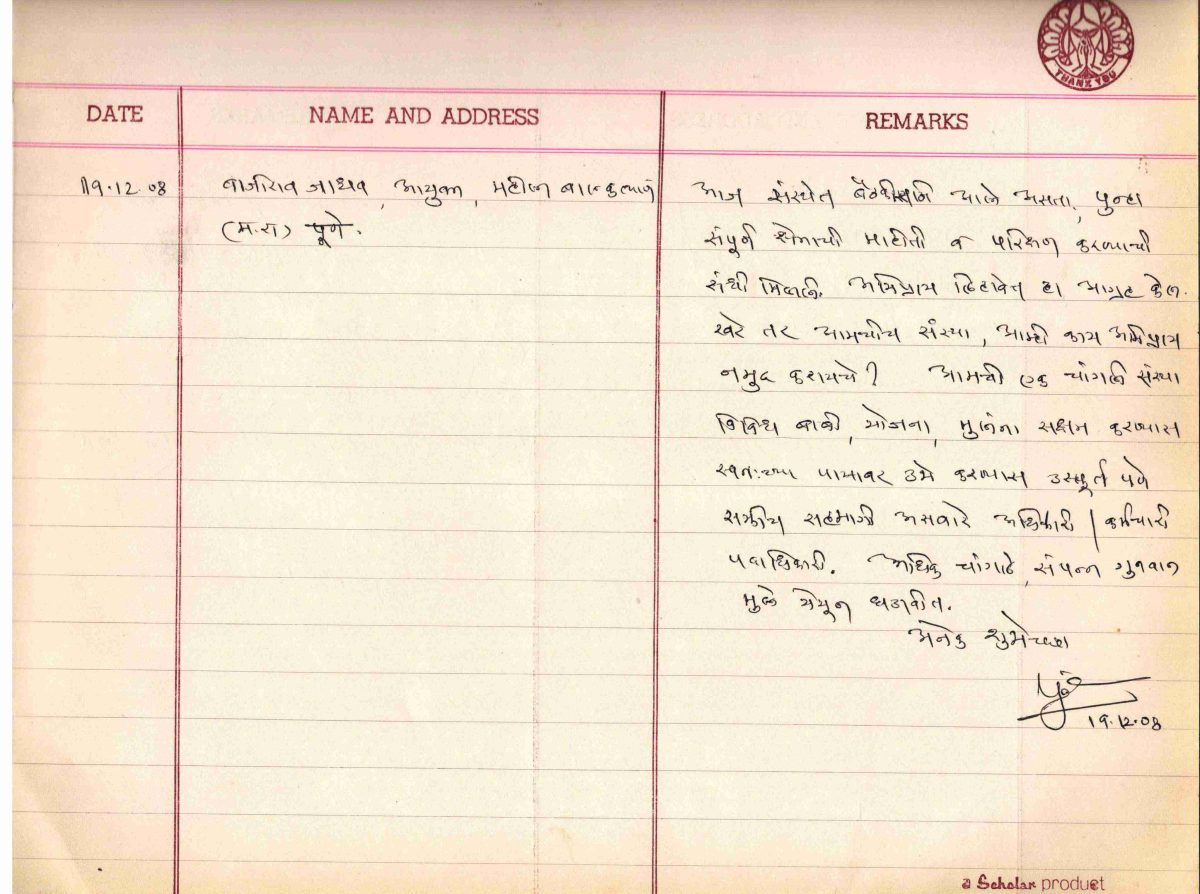 THANK YOU
DATE NAME AND ADDRESS REMARKS
19.12.08
बाजीराव जाधव, आयुक्त, महीला बालकल्याण
(म.रा) पूणे.
आज संस्थेत बैठकीसाठी आले असता, पुन्हा
संपूर्ण क्षेत्राची माहीती व परिक्षण करण्याची
संधी मिळाली. अभिप्राय लिहावेत हा आग्रह केला.
खरे तर आमचीच संस्था, आम्ही काय अभिप्राय
नमुद करायचे? आमची एक चांगली संस्था
विविध बाबी, योजना, मुलांना सक्षम करण्यास
स्वतःच्या पायावर उभे करण्यास उस्फूर्त पणे
सक्रीय सहभागी असणारे अधिकारी / कर्मचारी
पदाधिकारी. अधिक चांगले, संपन्न गुनवान
मुले येथून घडावीत.
अनेक शुभेच्छा
19.12.08
a Scholar product